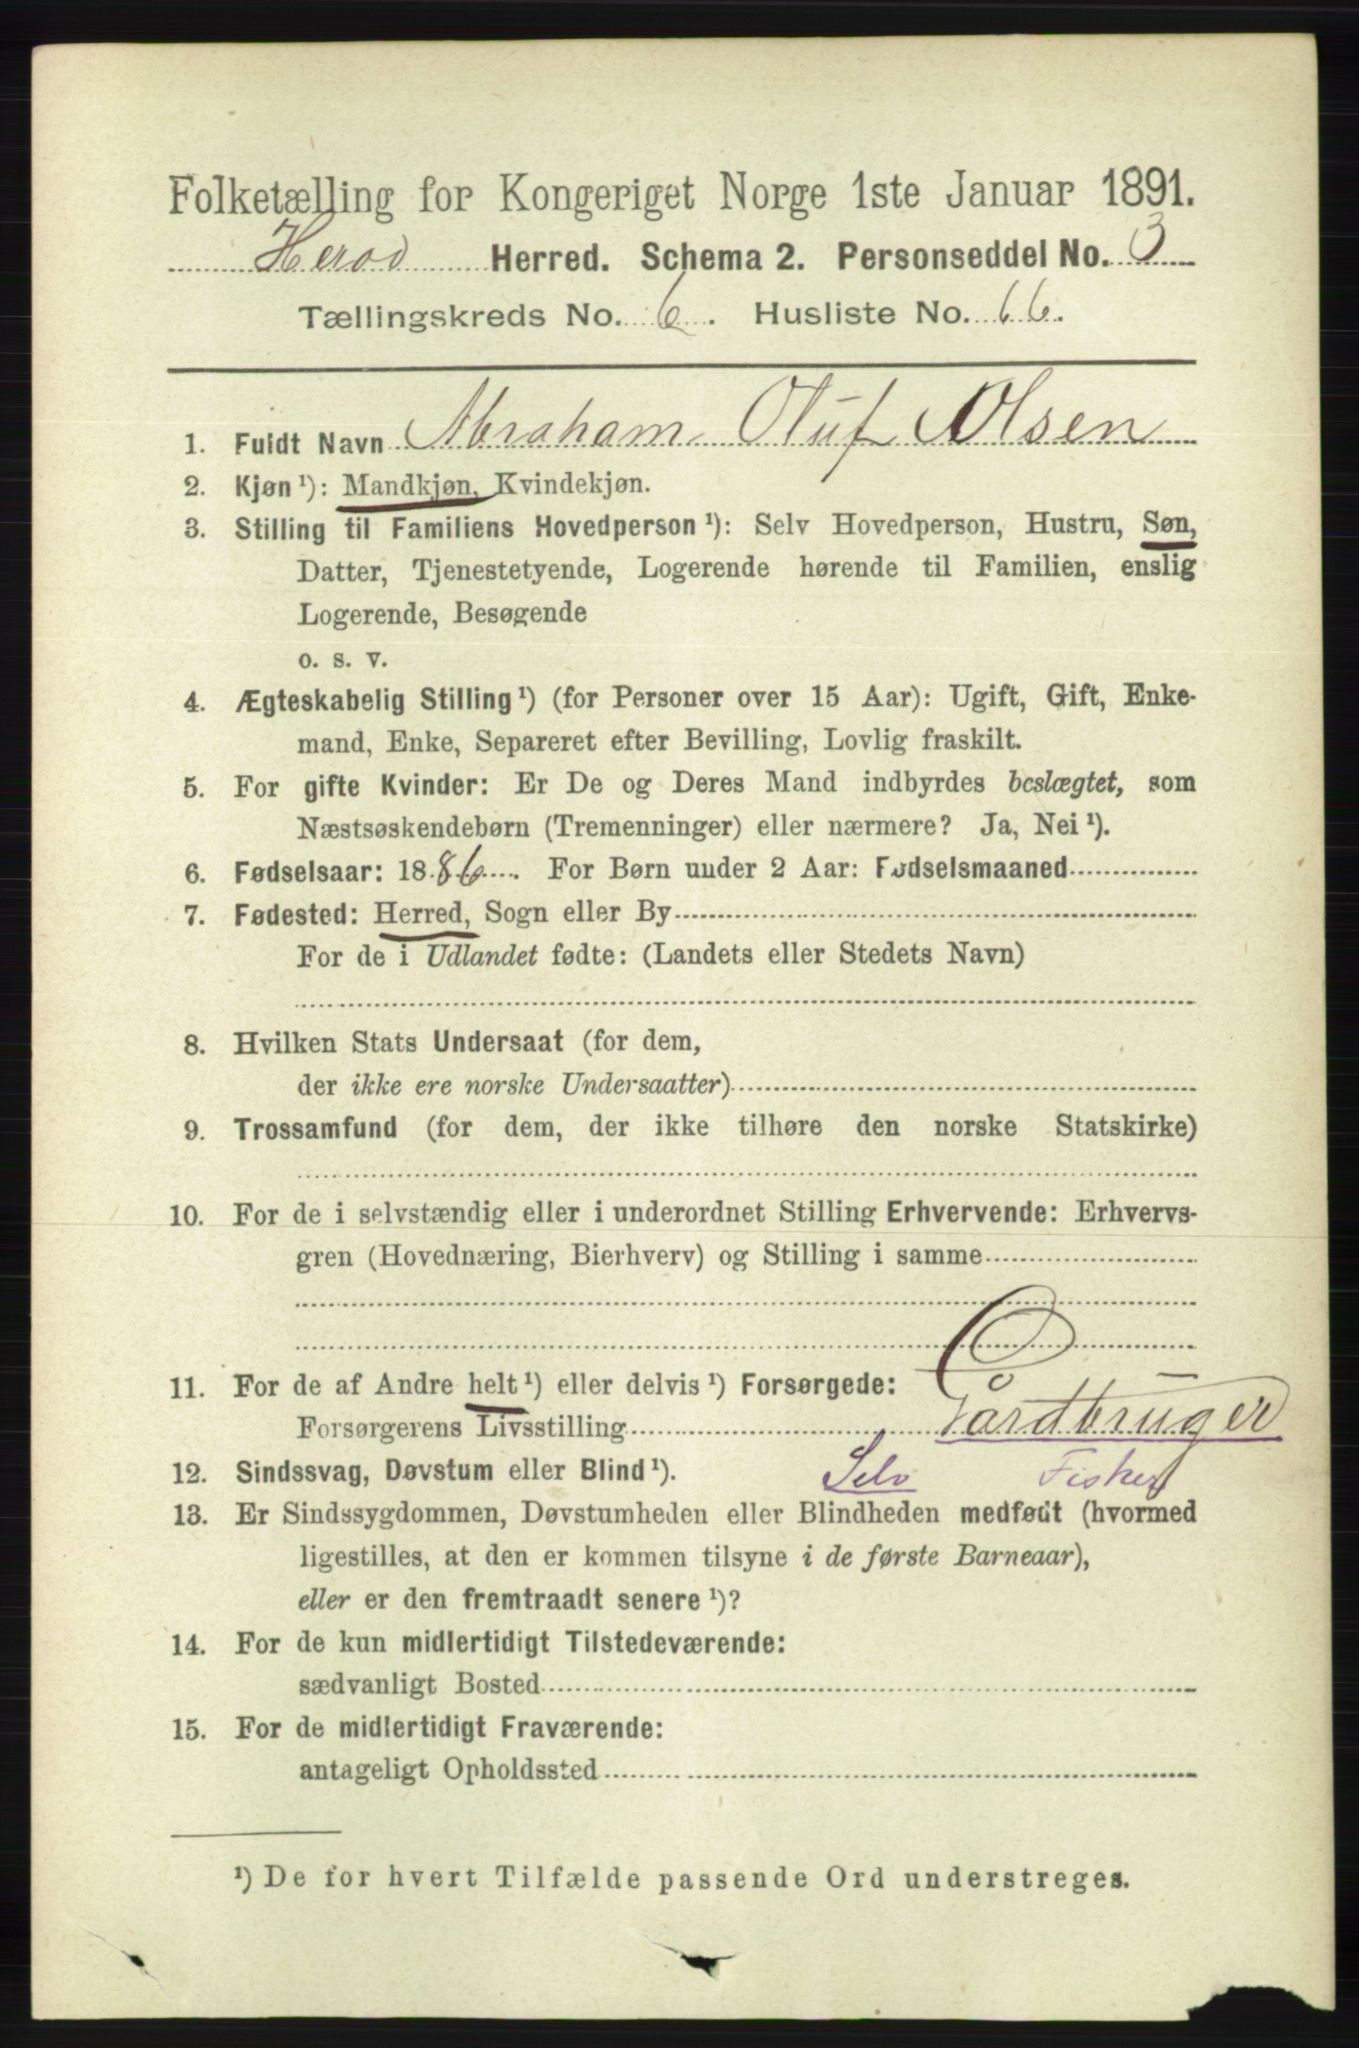 Folketælling for Kongeriget Norge 1ste Januar 1891.
Herød Herred. Schema 2. Personseddel No. 3
Tællingskreds No. 6. Husliste No. 66.
1. Fuldt Navn Abraham Oluf Olsen
2. Kjøn ¹): Mandkjøn, Kvindekjøn.
3. Stilling til Familiens Hovedperson ¹): Selv Hovedperson, Hustru, Søn,
Datter, Tjenestetyende, Logerende hørende til Familien, enslig
Logerende, Besøgende
o. s. v.
4. Ægteskabelig Stilling ¹) (for Personer over 15 Aar): Ugift, Gift, Enke-
mand, Enke, Separeret efter Bevilling, Lovlig fraskilt.
5. For gifte Kvinder: Er De og Deres Mand indbyrdes beslægtet, som
Næstsøskendebørn (Tremenninger) eller nærmere? Ja, Nei ¹).
6. Fødselsaar: 1886. For Børn under 2 Aar: Fødselsmaaned
7. Fødested: Herred, Sogn eller By
For de i Udlandet fødte: (Landets eller Stedets Navn)
8. Hvilken Stats Undersaat (for dem,
der ikke ere norske Undersaatter)
9. Trossamfund (for dem, der ikke tilhøre den norske Statskirke)
10. For de i selvstændig eller i underordnet Stilling Erhvervende: Erhvervs-
gren (Hovednæring, Bierhverv) og Stilling i samme
11. For de af Andre helt ¹) eller delvis ¹) Forsørgede:
Forsørgerens Livsstilling Gårdbruger
12. Sindssvag, Døvstum eller Blind ¹). Selv Fisker
13. Er Sindssygdommen, Døvstumheden eller Blindheden medfødt (hvormed
ligestilles, at den er kommen tilsyne i de første Barneaar),
eller er den fremtraadt senere ¹)?
14. For de kun midlertidigt Tilstedeværende:
sædvanligt Bosted
15. For de midlertidigt Fraværende:
antageligt Opholdssted
¹) De for hvert Tilfælde passende Ord understreges.